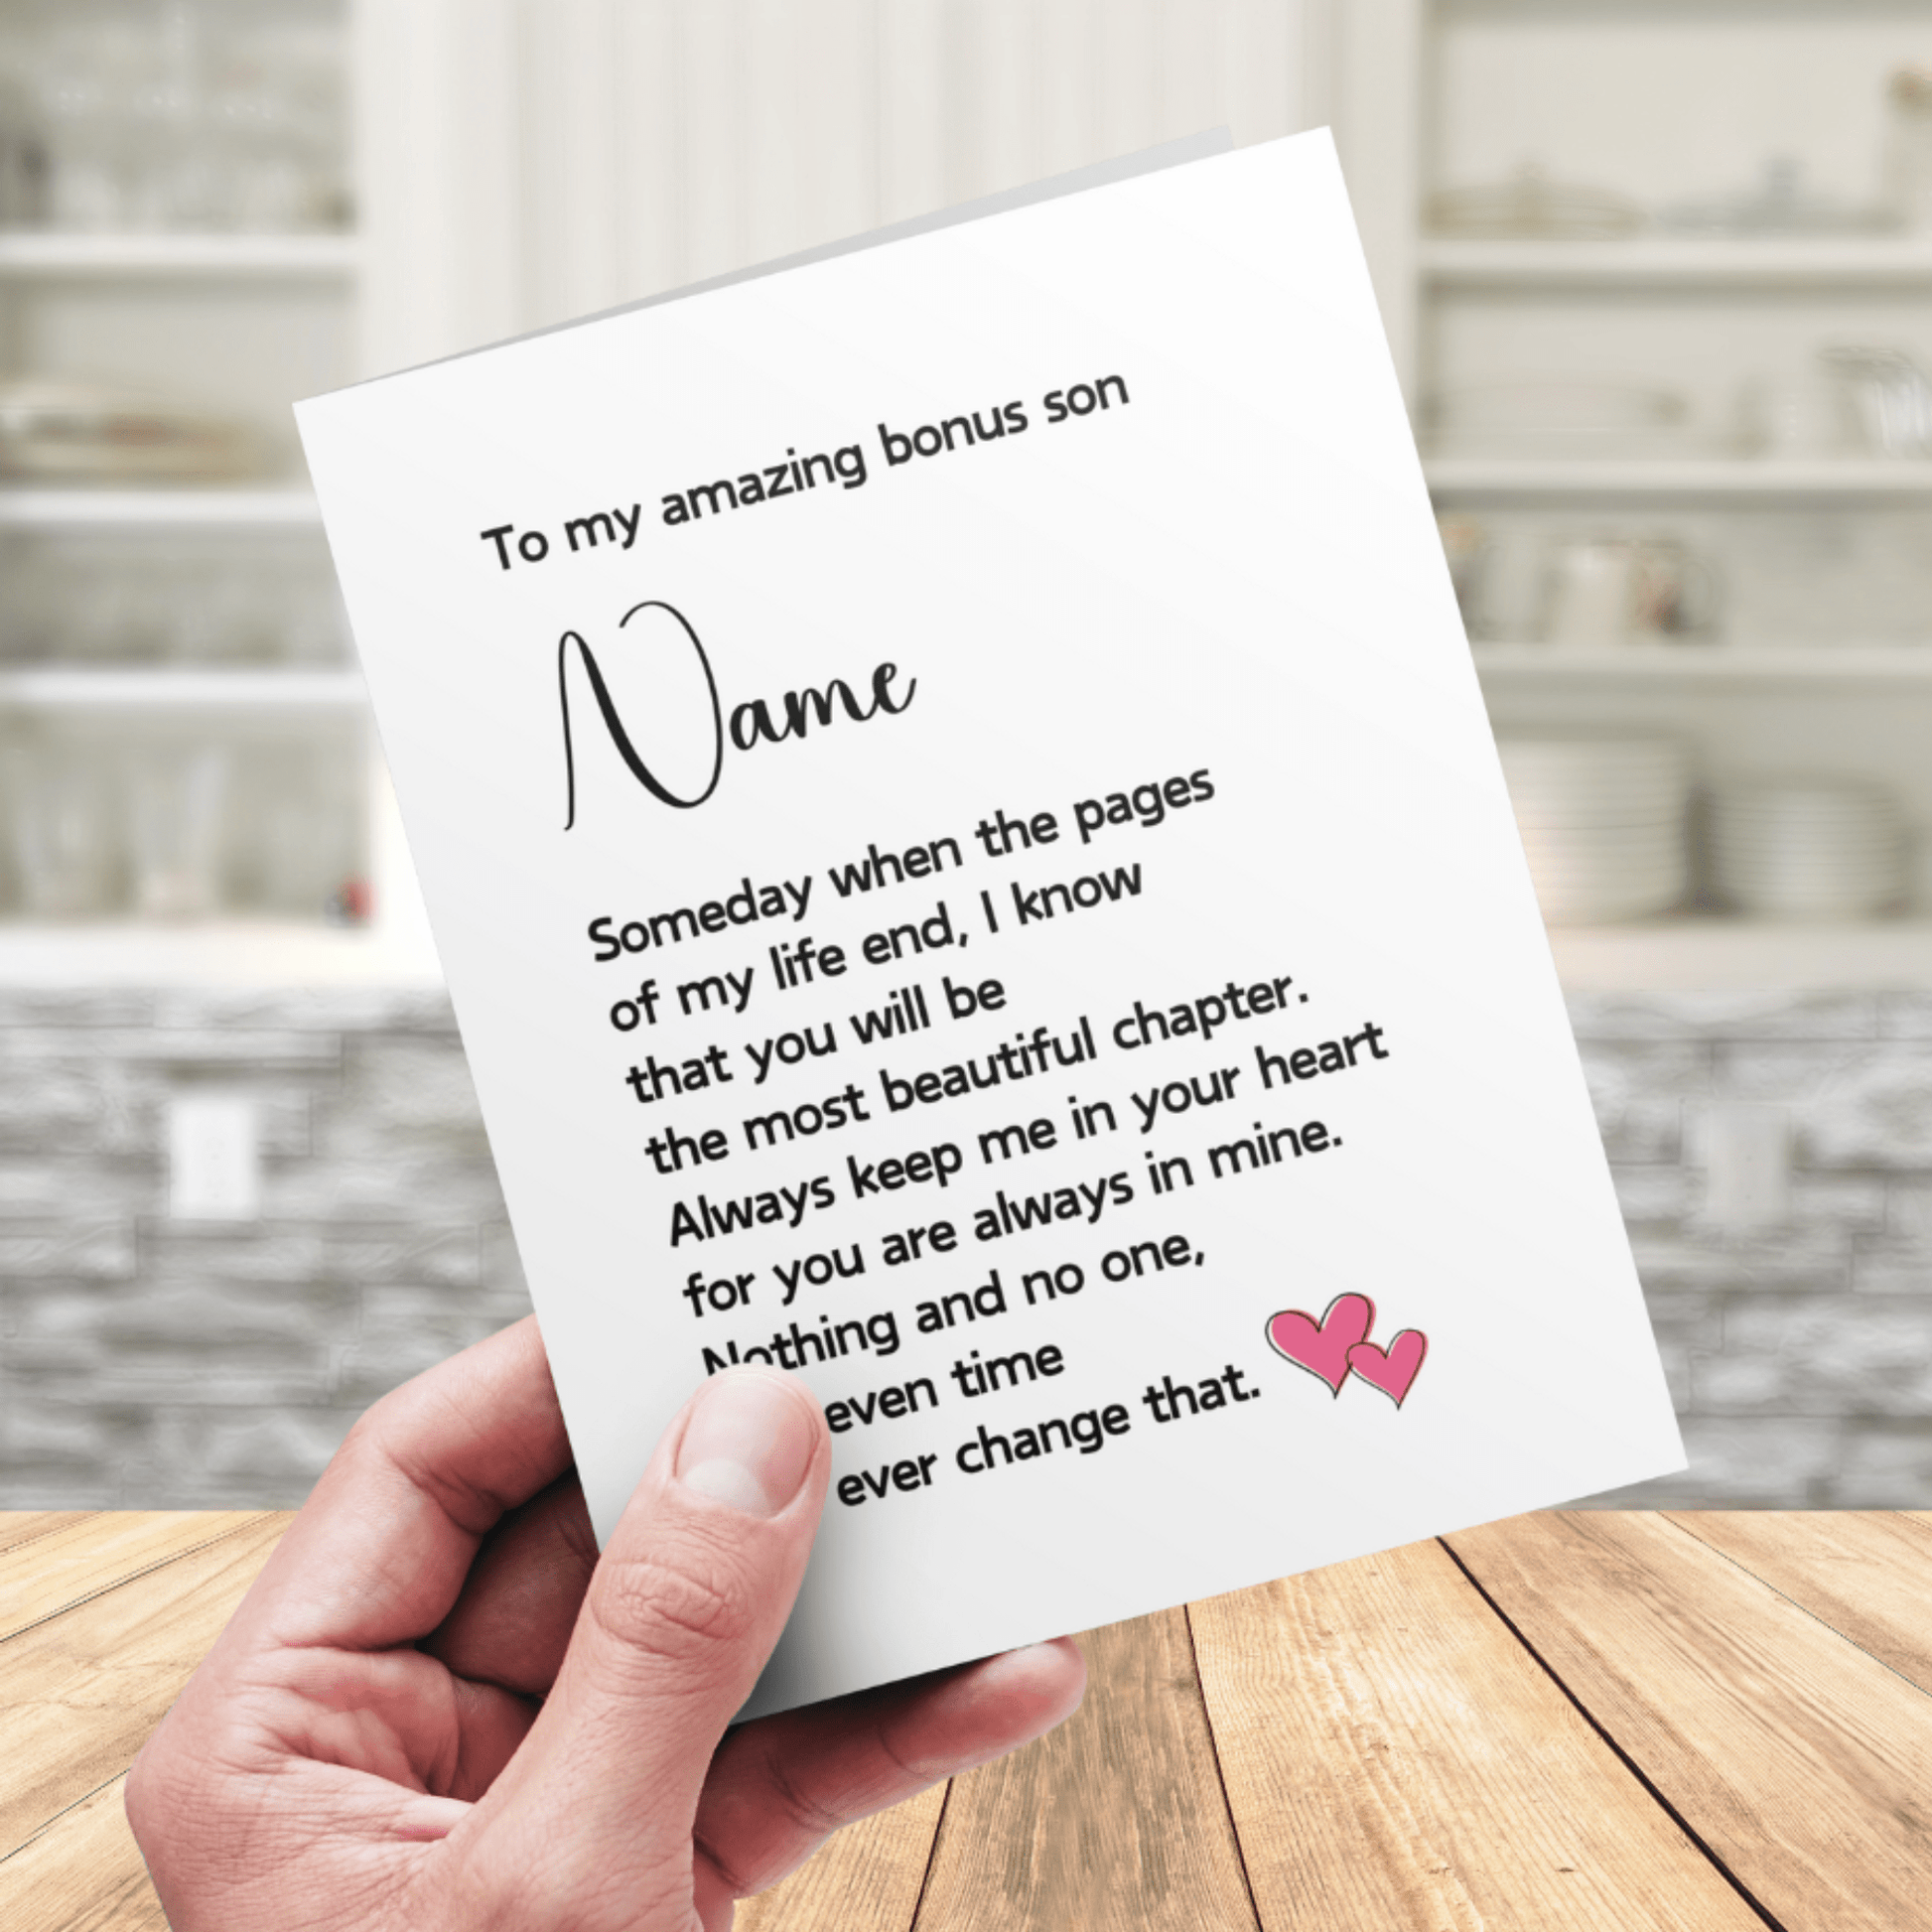 To my amazing bonus son
Name
Someday when the pages
of my life end, I know
that you will be
the most beautiful chapter.
Always keep me in your heart
for you are always in mine.
Nothing and no one,
even time
ever change that.